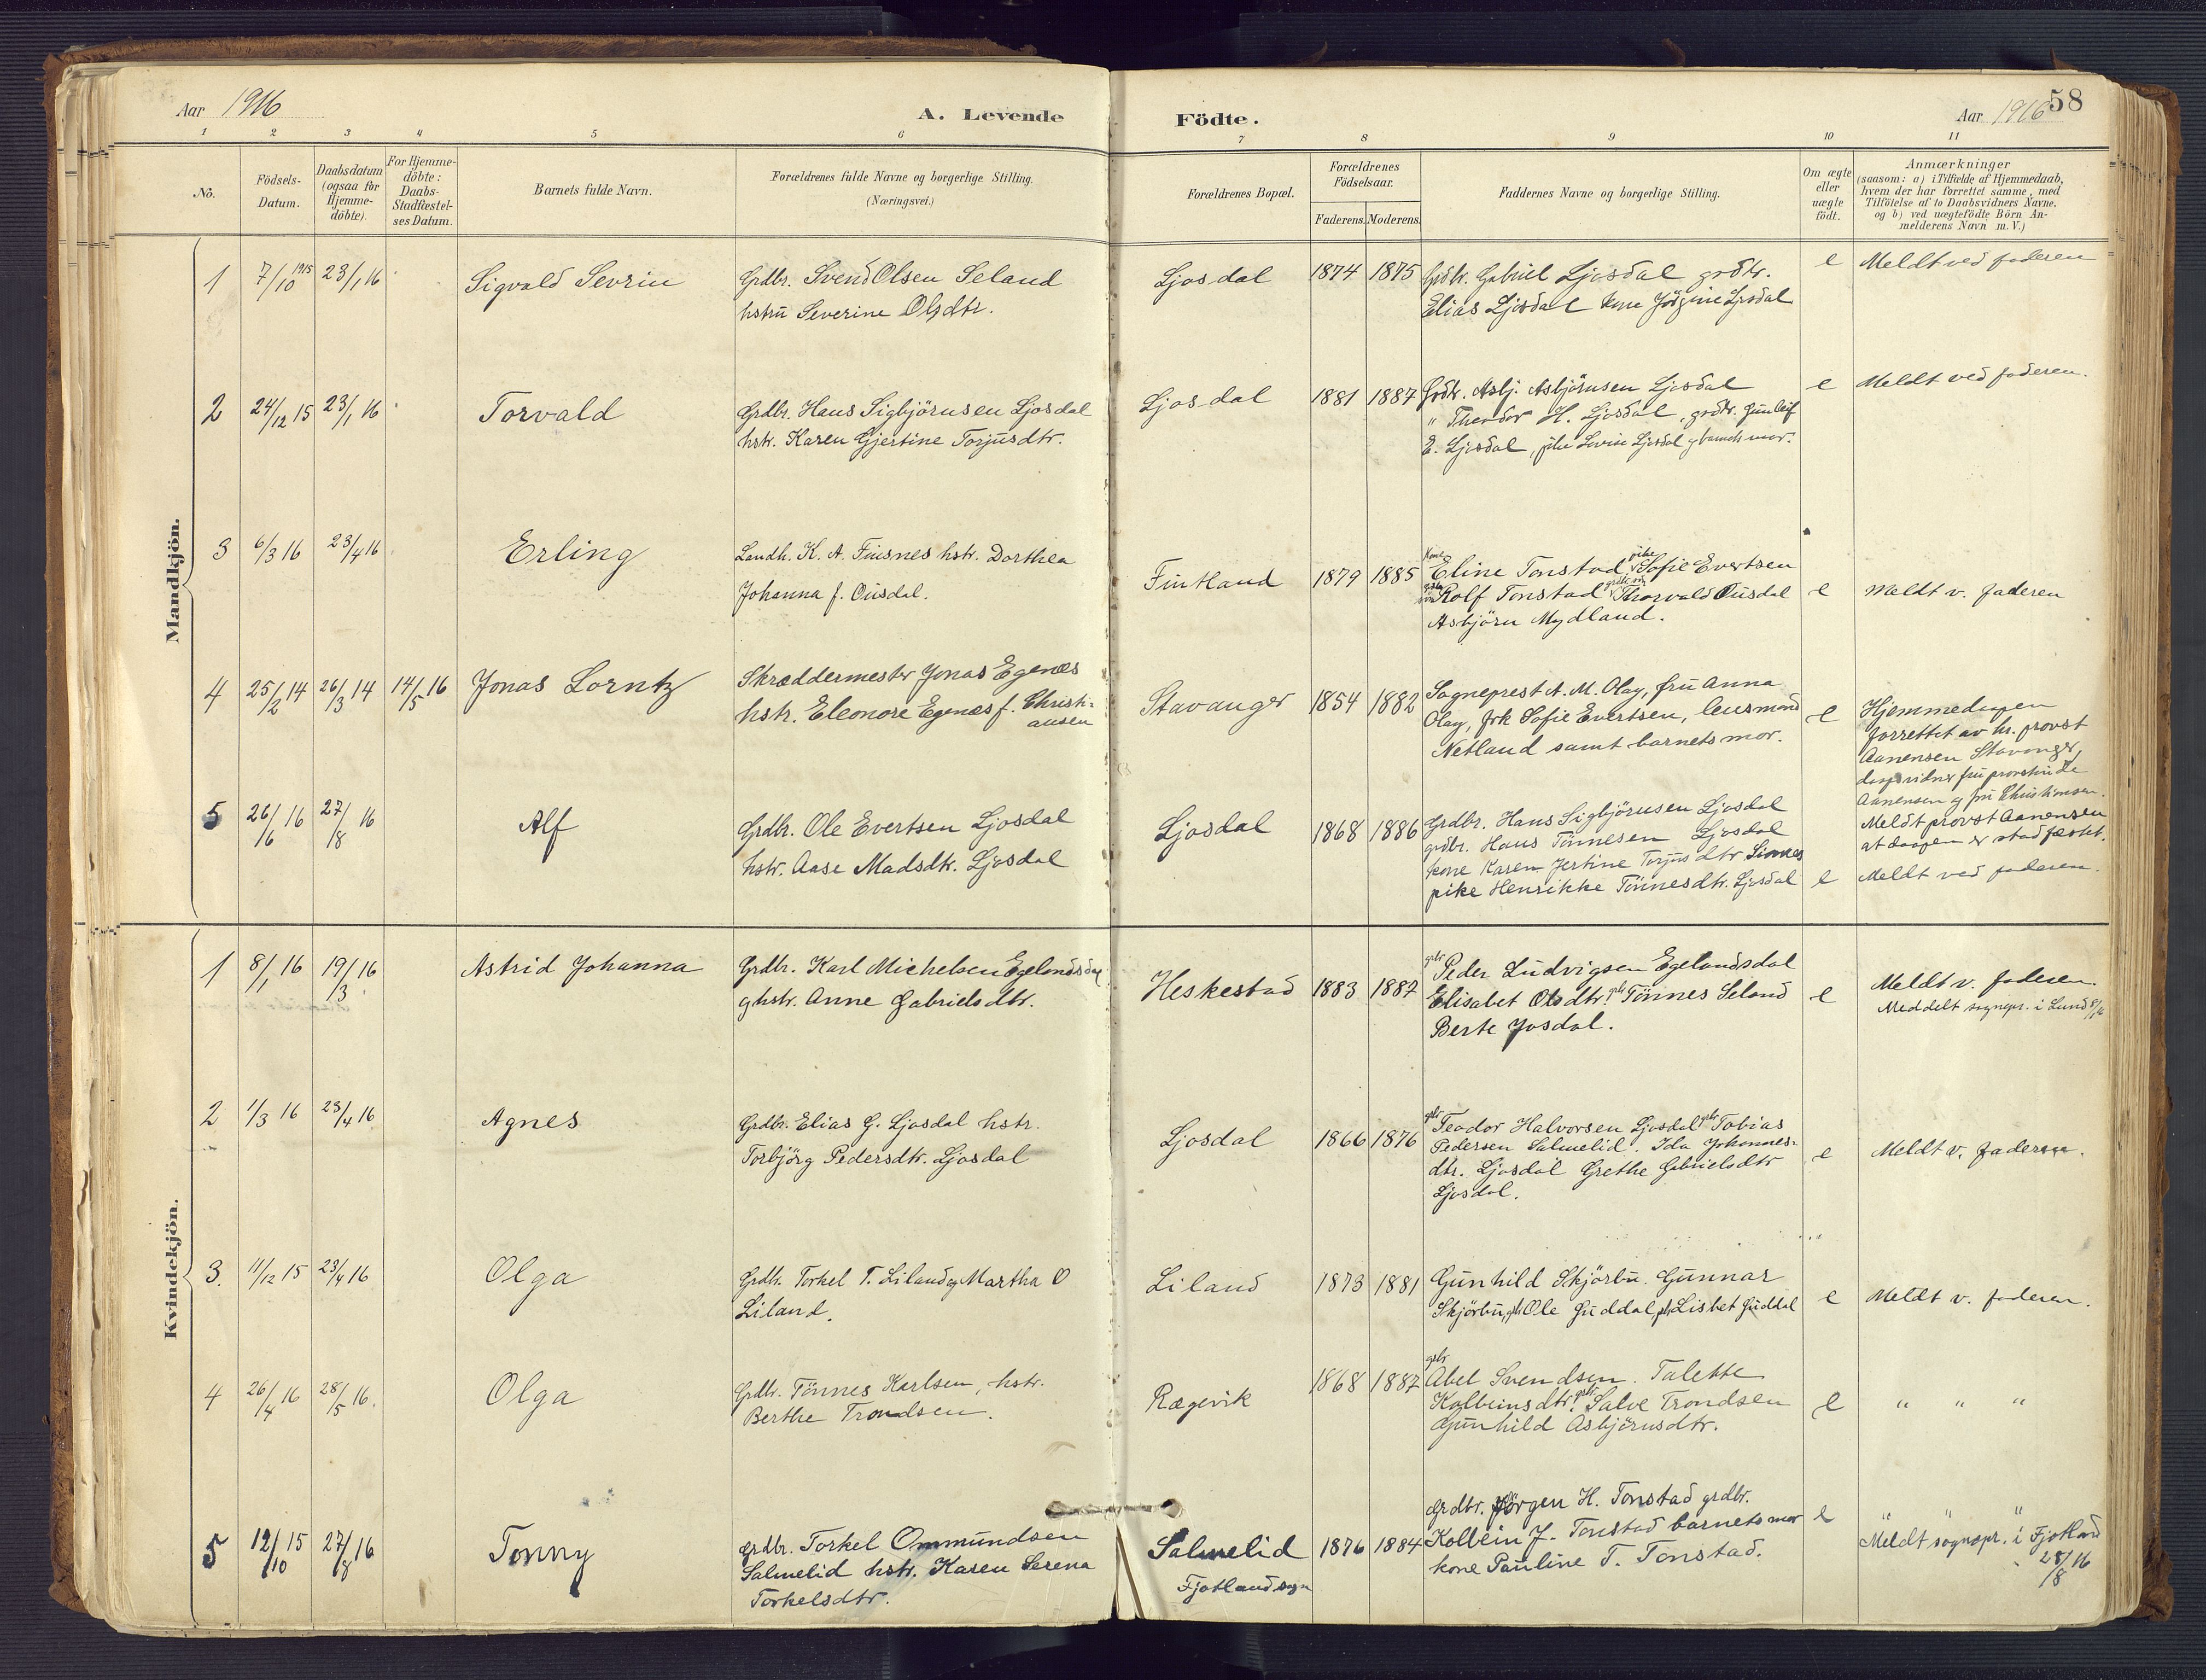 Aar 1916
A. Levende Födte.
Aar 1916 58
1 2 3 4 5 6 7 8 9 10 11
No.
Födsels-Datum.
Daabsdatum (ogsaa for Hjemme-döbte).
For Hjemme-döbte: Daabs-Stadfæstel-ses Datum.
Barnets fulde Navn.
Forældrenes fulde Navne og borgerlige Stilling.
(Næringsvei.)
Forældrenes Bopæl.
Forældrenes Födselsaar.
Faderens. Moderens.
Faddernes Navne og borgerlige Stilling.
Om ægte eller uægte födt.
Anmærkninger
(saasom: a) i Tilfælde af Hjemmedaab,
hvem der har forrettet samme, med
Tilföielse af to Daabsvidners Navne.
og b) ved uægtefödte Börn An-
melderens Navn m. V.)
Mandkjön.
1 7/10 1915 23/1 16 Sigvald Sevrin
Grdbr. Svend Olsen Seland
hstru Severine Olsdtr.
Ljosdal 1874 1875
Grdbr. Gabriel Ljosdal grdbr.
Elias Ljosdal kone Jörgine Ljosdal
e Meldt ved faderen
2 24/12 15 23/1 16 Torvald
Grdbr. Hans Sigbjörnsen Ljosdal
hstr. Karen Gjertine Torjusdtr.
Ljosdal 1881 1887
Grdbr. Asbj. Asbjörnsen Ljosdal
" Theodor H. Ljosdal, grdbr. Gunleif
E. Ljosdal, pike Sevrine Ljosdal og barnets mor.
e Meldt ved faderen.
3 6/3 16 23/4 16 Erling
Landh. K. A. Finsnes hstr. Dorthea
Johanna f. Ousdal.
Fintland 1879 1885
Kone Eline Tonstad pike Sofie Evertsen
Rolf Tonstad grdbr. søn Thorvald Ousdal
Asbjörn Mydland.
e Meldt v. faderen
4 25/2 14 26/3 14 14/5 16 Jonas Lorntz
Skræddermester Jonas Egenæs
hstr. Eleonore Egenæs f. Christi-
ansen
Stavanger 1854 1882
Sogneprest A. M. Olay, fru Anna
Olay, frk Sofie Evertsen, lensmand
Netland samt barnets mor.
e
Hjemmedaapen
forrettet av hr. provst
Aanensen Stavanger,
daapsvidner fru provstinde
Aanensen og fru Christiansen.
Meldt provst Aanensen
at daapen er stadfæstet.
5 26/6 16 27/8 16 Alf
Grdbr. Ole Evertsen Ljosdal
hstr. Aase Madsdtr. Ljosdal
Ljosdal 1868 1886
Grdbr. Hans Sigbjörnsen Ljosdal
grdbr. Hans Tönnesen Ljosdal
kone Karen Jertine Torjusdtr
pike Henrikke Tönnesdtr. Ljosdal
e Meldt ved faderen.
Kvindekjön.
1 8/1 16 19/3 16 Astrid Johanna
Grdbr. Karl Michelsen Egelandsdal
og hstr. Anne Gabrielsdtr.
Heskestad 1883 1887
Peder Ludvigsen Egelandsdal
Elisabet Olsdtr. Tönnes Seland
Berte Josdal.
e Meldt v. faderen.
Meddelt sognepr. i Lund
2 1/3 16 23/4 16 Agnes
Grdbr. Elias G. Ljosdal hstr.
Torbjörg Pedersdtr. Ljosdal
Ljosdal 1866 1876
Teodor Halvorsen Ljosdal Tobias
Pedersen Salmelid. Ida Johannes-
dtr. Ljosdal Grethe Gabrielsdtr
Ljosdal.
e Meldt v. faderen.
3. 11/12 15 23/4 16 Olga
Grdbr. Torkel T. Liland og Martha O
Liland.
Liland 1873 1881
Gunhild Skjörbu. Gunnar
Skjörbu, Ole Guddal, Lisbet Guddal
e Meldt v. faderen.
4 26/4 16 28/5 16. Olga
Grdbr. Tönnes Karlsen, hstr.
Berthe Trondsen.
Rægevik 1868 1887
Abel Svendsen. Talette
Kolbeinsdtr. Salve Trondsen
Gunhild Asbjörnsdtr.
e " " "
5 12/10 15 27/8 16 Tonny
grdbr. Torkel Ommundsen
Salmelid hstr. Karen Serena
Torkelsdtr.
Salmelid
Fjotland sogn
1876 1884
Grdbr. Jörgen H. Tonstad grdbr.
Kolbein J. Tonstad barnets mor
kone Pauline T. Tonstad.
e " " "
Meldt sognepr. i Fjotland
28/8 16